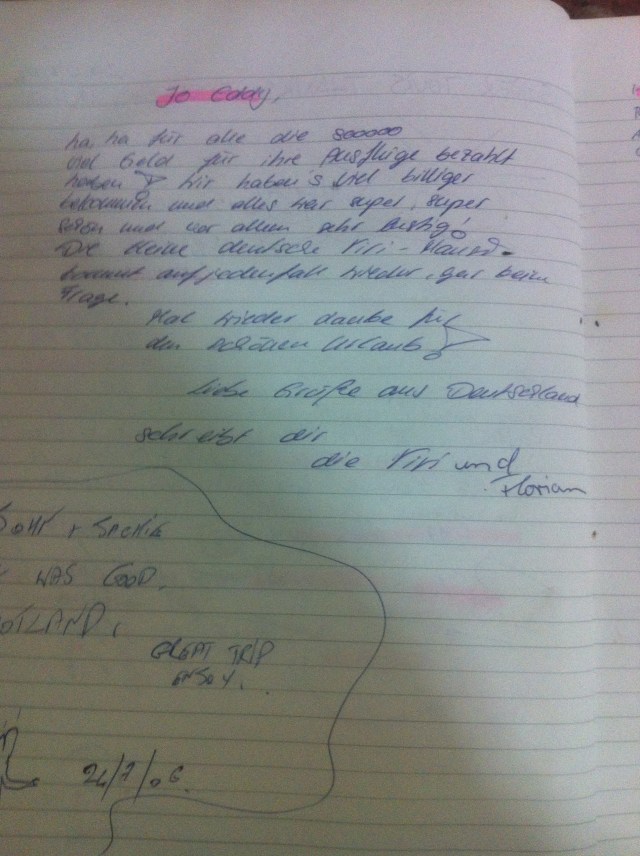 Jo Eddy,
ha, ha für alle die sooooo
viel Geld für ihre Ausflüge bezahlt
haben Wir haben's viel billiger
bekommen und alles war super, super
schön und vor allem sehr lustig!
Die kleine deutsche Vivi-Maus
kommt auf jedenfall wieder, gar keine
Frage.
Mal wieder danke für
den schönen Urlaub
Liebe Grüße aus Deutschland
schreibt dir
die Vivi und
Florian
WAS GOOD.
GREAT TRIP
ENJOY.
24/7/06